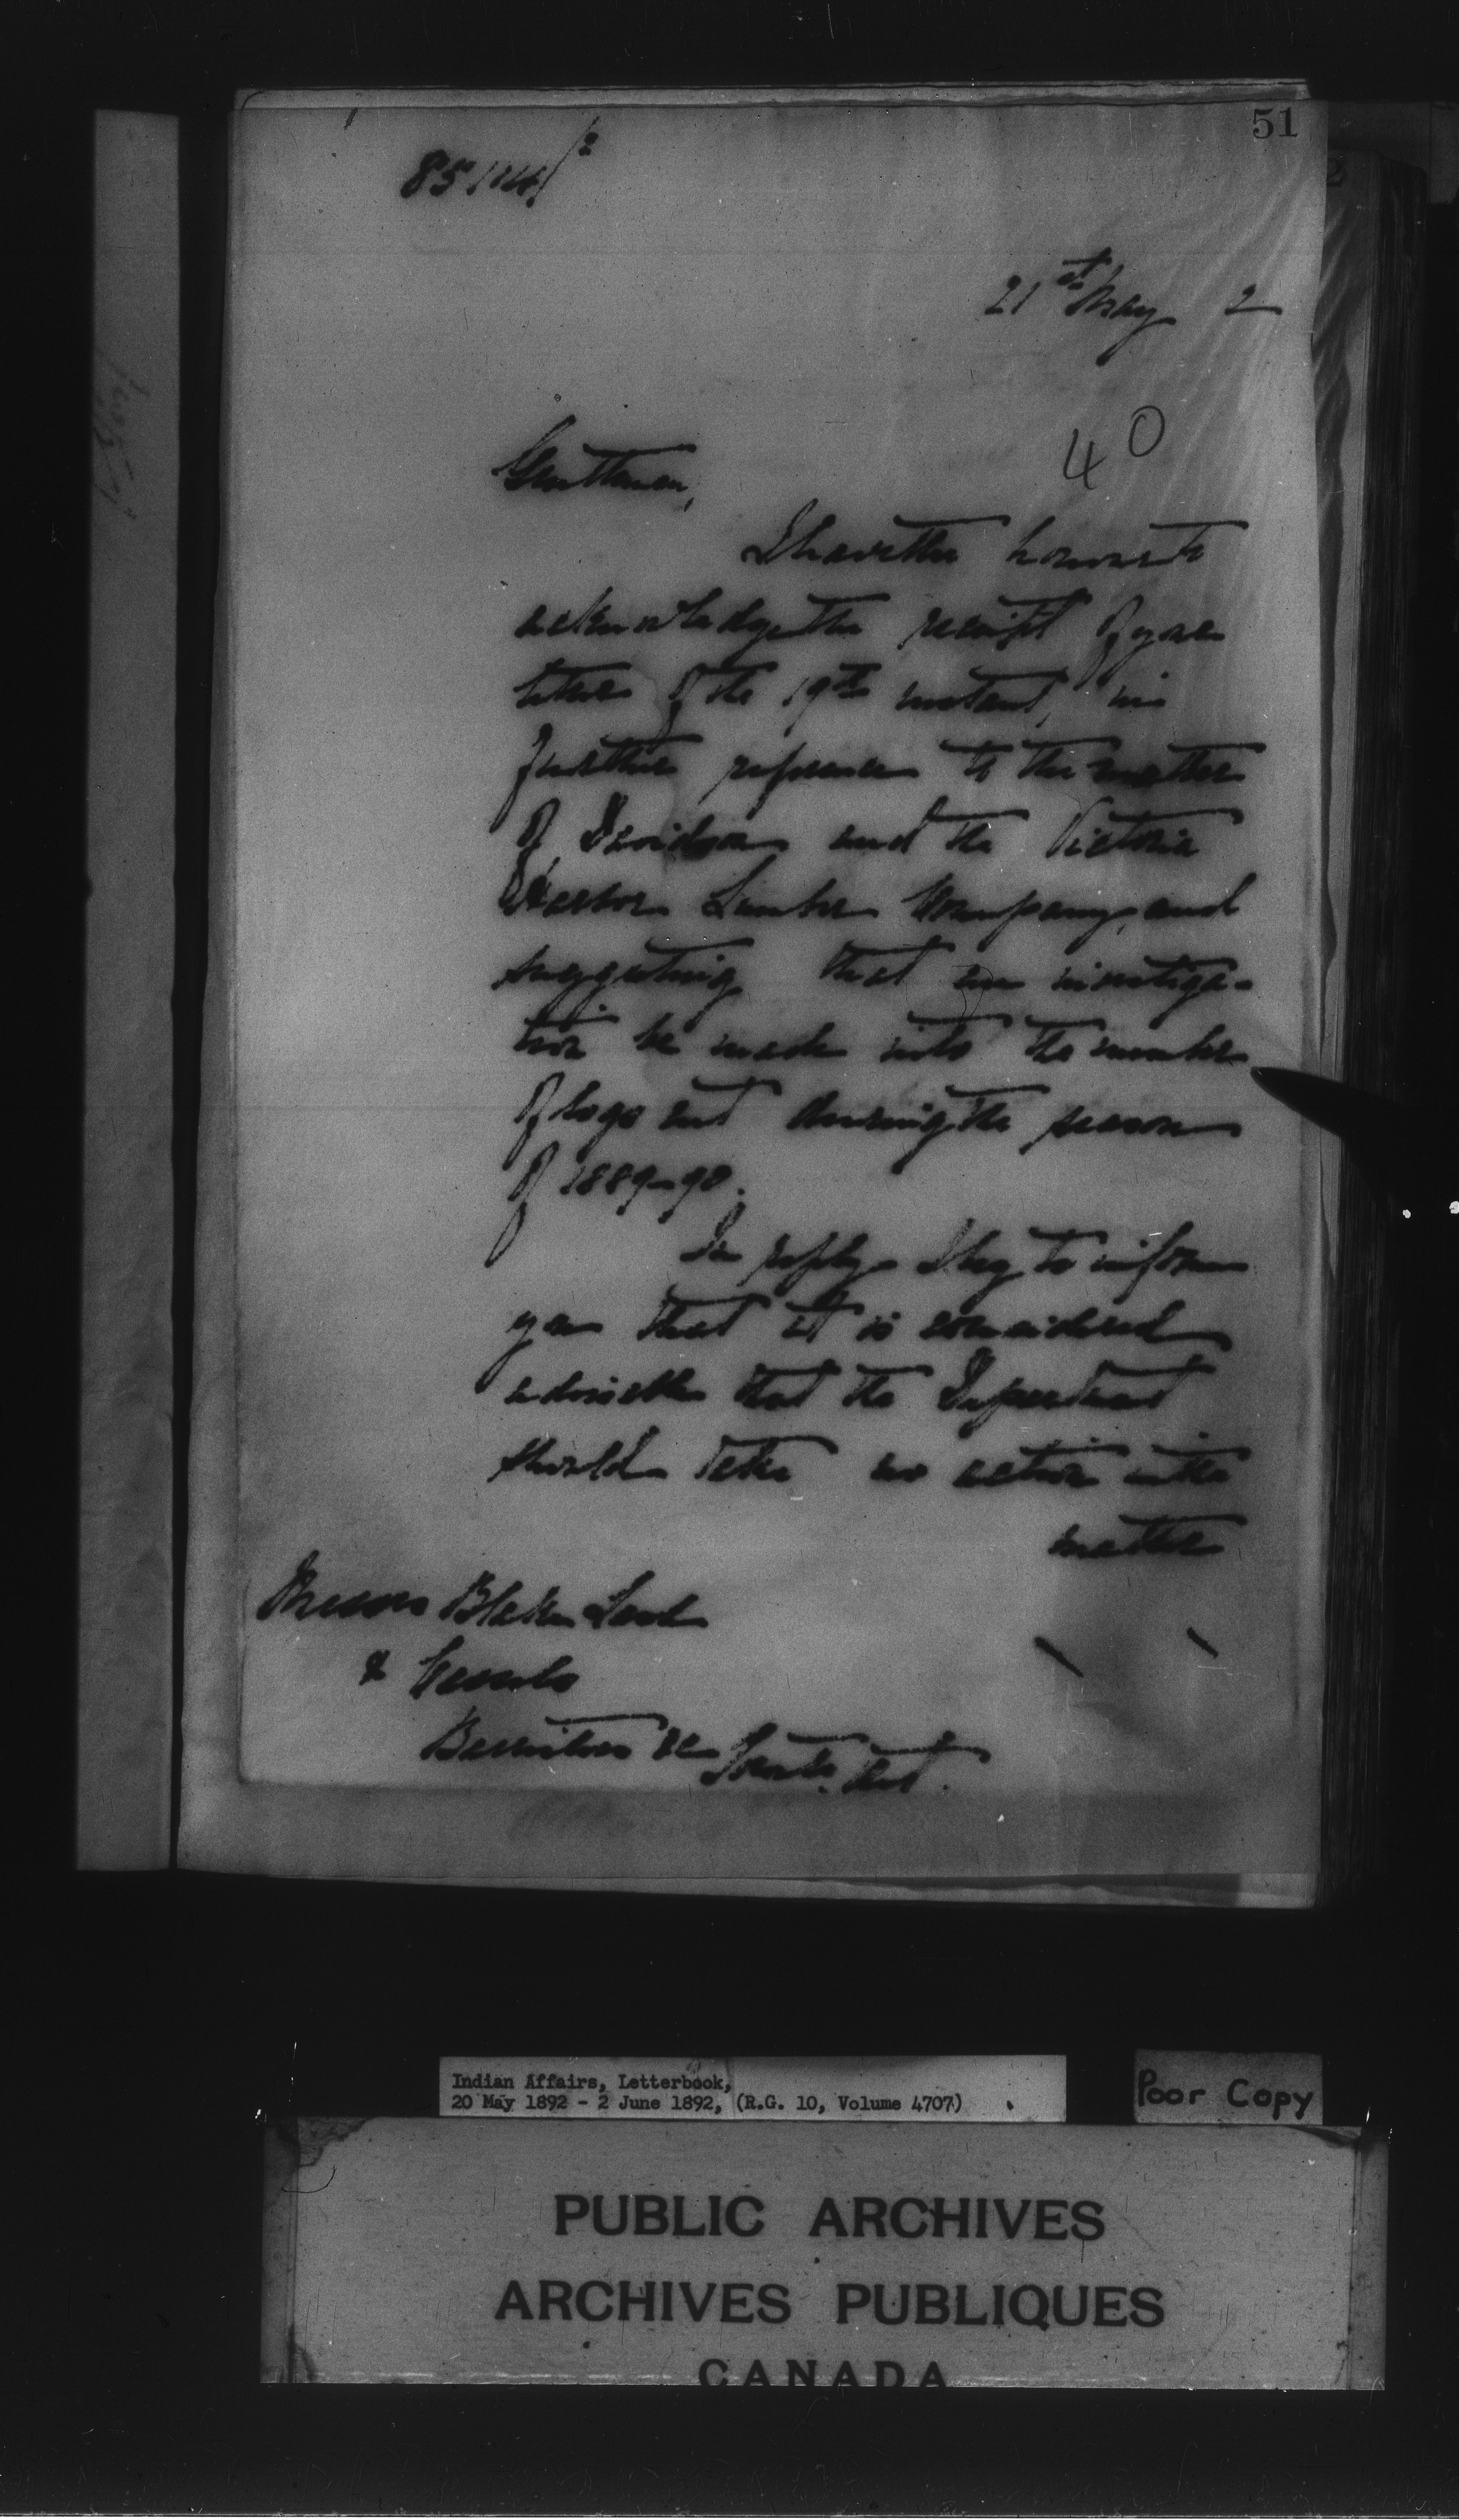 51
21st May 2
40
Gentlemen,
I have the honour to
acknowledge the receipt of your
letter of the 19th instant, in
further reference to the matter
of Davidson and the Victoria
Harbor Lumber Company, and
suggesting that an investiga-
tion be made into the number
of logs cut during the season
of 1889-90.
In reply I beg to inform
you that it is considered
advisable that the Department
should take no action in the
matter
Messrs Blake Lash
& Cassels
Barristers &c Toronto, Ont.
Indian Affairs, Letterbook,
20 May 1892 - 2 June 1892, (R.G. 10, Volume 4707)
Poor Copy
PUBLIC ARCHIVES
ARCHIVES PUBLIQUES
CANADA